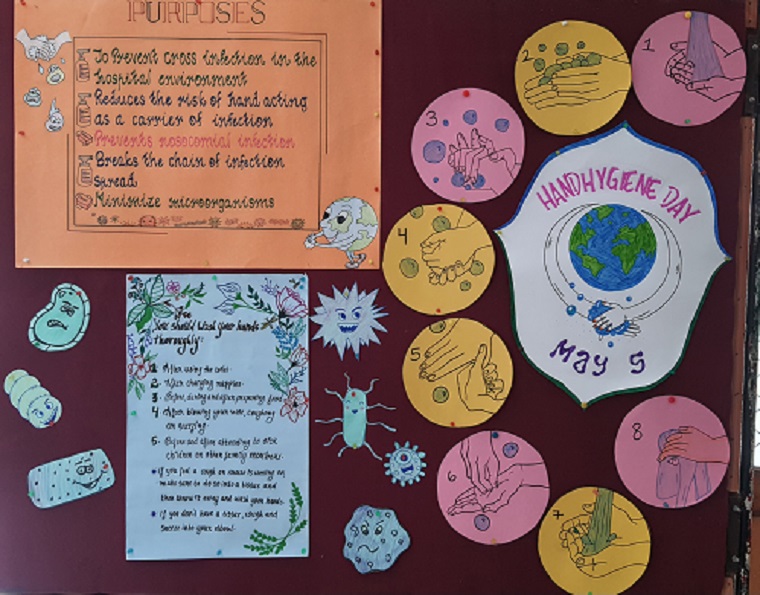 PURPOSES
To Prevent cross infection in the
hospital environment
Reduces the risk of hand acting
as a carrier of infection
Prevents nosocomial infection
Breaks the chain of infection
spread
Minimize microorganisms
You should wash your hands
thoroughly:
1. After using the toilet.
2. After changing nappies.
3. Before, during and after preparing food.
4. After blowing your nose, coughing
or sneezing.
5. Before and after attending to sick
children or other family members.
If you feel a cough or sneeze coming on,
make sure to do so into a tissue and
then throw it away and wash your hands.
If you don't have a tissue, cough and
sneeze into your elbow.
HANDHYGIENE DAY
May 5
1
2
3
4
5
6
7
8